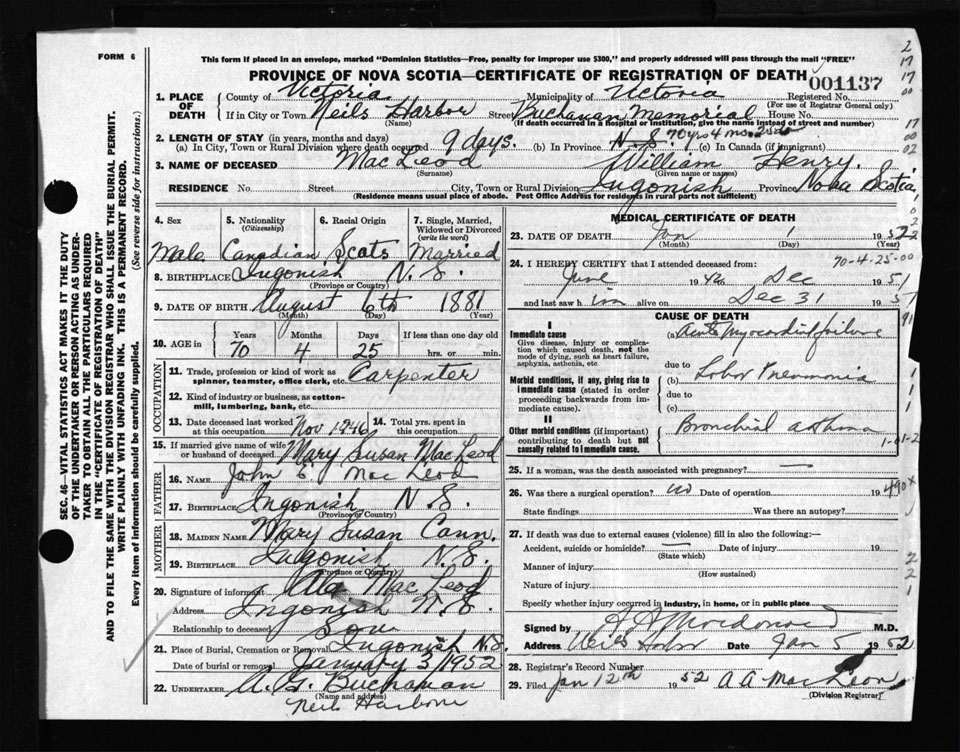 FORM 6
This form if placed in an envelope, marked "Dominion Statistics—Free, penalty for improper use $300," and properly addressed will pass through the mail "FREE"
PROVINCE OF NOVA SCOTIA—CERTIFICATE OF REGISTRATION OF DEATH 001137
1. PLACE OF DEATH County of Victoria Municipality of Victoria Registered No.
(For use of Registrar General only)
If in City or Town Neils Harbor Street Buchanan Memorial House No.
(Name) (If death occurred in a hospital or institution, give the name instead of street and number)
2. LENGTH OF STAY (in years, months and days) N.S. 70 yrs 4 mo. 25 do
(a) In City, Town or Rural Division where death occurred 9 days. (b) In Province (c) In Canada (if immigrant)
3. NAME OF DECEASED MacLeod William Henry.
(Surname) (Given name or names)
RESIDENCE No. Street City, Town or Rural Division Ingonish Province Nova Scotia
(Residence means usual place of abode. Post Office Address for residents in rural parts not sufficient)
4. Sex 5. Nationality (Citizenship) 6. Racial Origin 7. Single, Married, Widowed or Divorced (write the word)
Male Canadian Scots Married
8. BIRTHPLACE Ingonish N.S.
(Province or Country)
9. DATE OF BIRTH August 6th 1881
(Month) (Day) (Year)
10. AGE in Years Months Days If less than one day old
70 4 25 hrs. or min.
OCCUPATION
11. Trade, profession or kind of work as spinner, teamster, office clerk, etc. Carpenter
12. Kind of industry or business, as cotton-mill, lumbering, bank, etc.
13. Date deceased last worked at this occupation Nov 1946 14. Total yrs. spent in this occupation
15. If married give name of wife or husband of deceased Mary Susan MacLeod
FATHER
16. Name John E. MacLeod
17. Birthplace Ingonish N.S.
(Province or Country)
MOTHER
18. MAIDEN NAME Mary Susan Cann.
19. BIRTHPLACE Ingonish N.S.
(Province or Country)
20. Signature of informant MacLeod
Address Ingonish N.S.
Relationship to deceased Son
21. Place of Burial, Cremation or Removal Ingonish N.S.
Date of burial or removal January 3, 1952
22. UNDERTAKER A. G. Buchanan
(Name and address)
Neil Harbour
MEDICAL CERTIFICATE OF DEATH
23. DATE OF DEATH Jan 1 1952
(Month) (Day) (Year)
70-4-25-00
24. I HEREBY CERTIFY that I attended deceased from:
June 1946 to Dec 1951
and last saw him alive on Dec 31 1951
CAUSE OF DEATH
I
Immediate cause
Give disease, injury or complication which caused death, not the mode of dying, such as heart failure, asphyxia, asthenia, etc.
(a) Acute myocardial failure
due to
Morbid conditions, if any, giving rise to immediate cause (stated in order proceeding backwards from immediate cause).
(b) Lobar Pneumonia
due to
(c)
II
Other morbid conditions (if important) contributing to death but not causally related to immediate cause.
Bronchial asthma
25. If a woman, was the death associated with pregnancy? —
26. Was there a surgical operation? no Date of operation 19
490x
State findings Was there an autopsy?
27. If death was due to external causes (violence) fill in also the following:—
Accident, suicide or homicide? — Date of injury 19
(State which)
Manner of injury
(How sustained)
Nature of injury
Specify whether injury occurred in industry, in home, or in public place
Signed by M.D.
Address Neils Harbor Date Jan 5 1952
28. Registrar's Record Number
29. Filed Jan 12th 1952 A A MacLeod
(Division Registrar)
SEC. 46—VITAL STATISTICS ACT MAKES IT THE DUTY
OF THE UNDERTAKER OR PERSON ACTING AS UNDERTAKER TO OBTAIN ALL THE PARTICULARS REQUIRED
IN THE "CERTIFICATE OF REGISTRATION OF DEATH"
AND TO FILE THE SAME WITH THE DIVISION REGISTRAR WHO SHALL ISSUE THE BURIAL PERMIT.
WRITE PLAINLY WITH UNFADING INK. THIS IS A PERMANENT RECORD.
Every item of information should be carefully supplied. (See reverse side for instructions.)